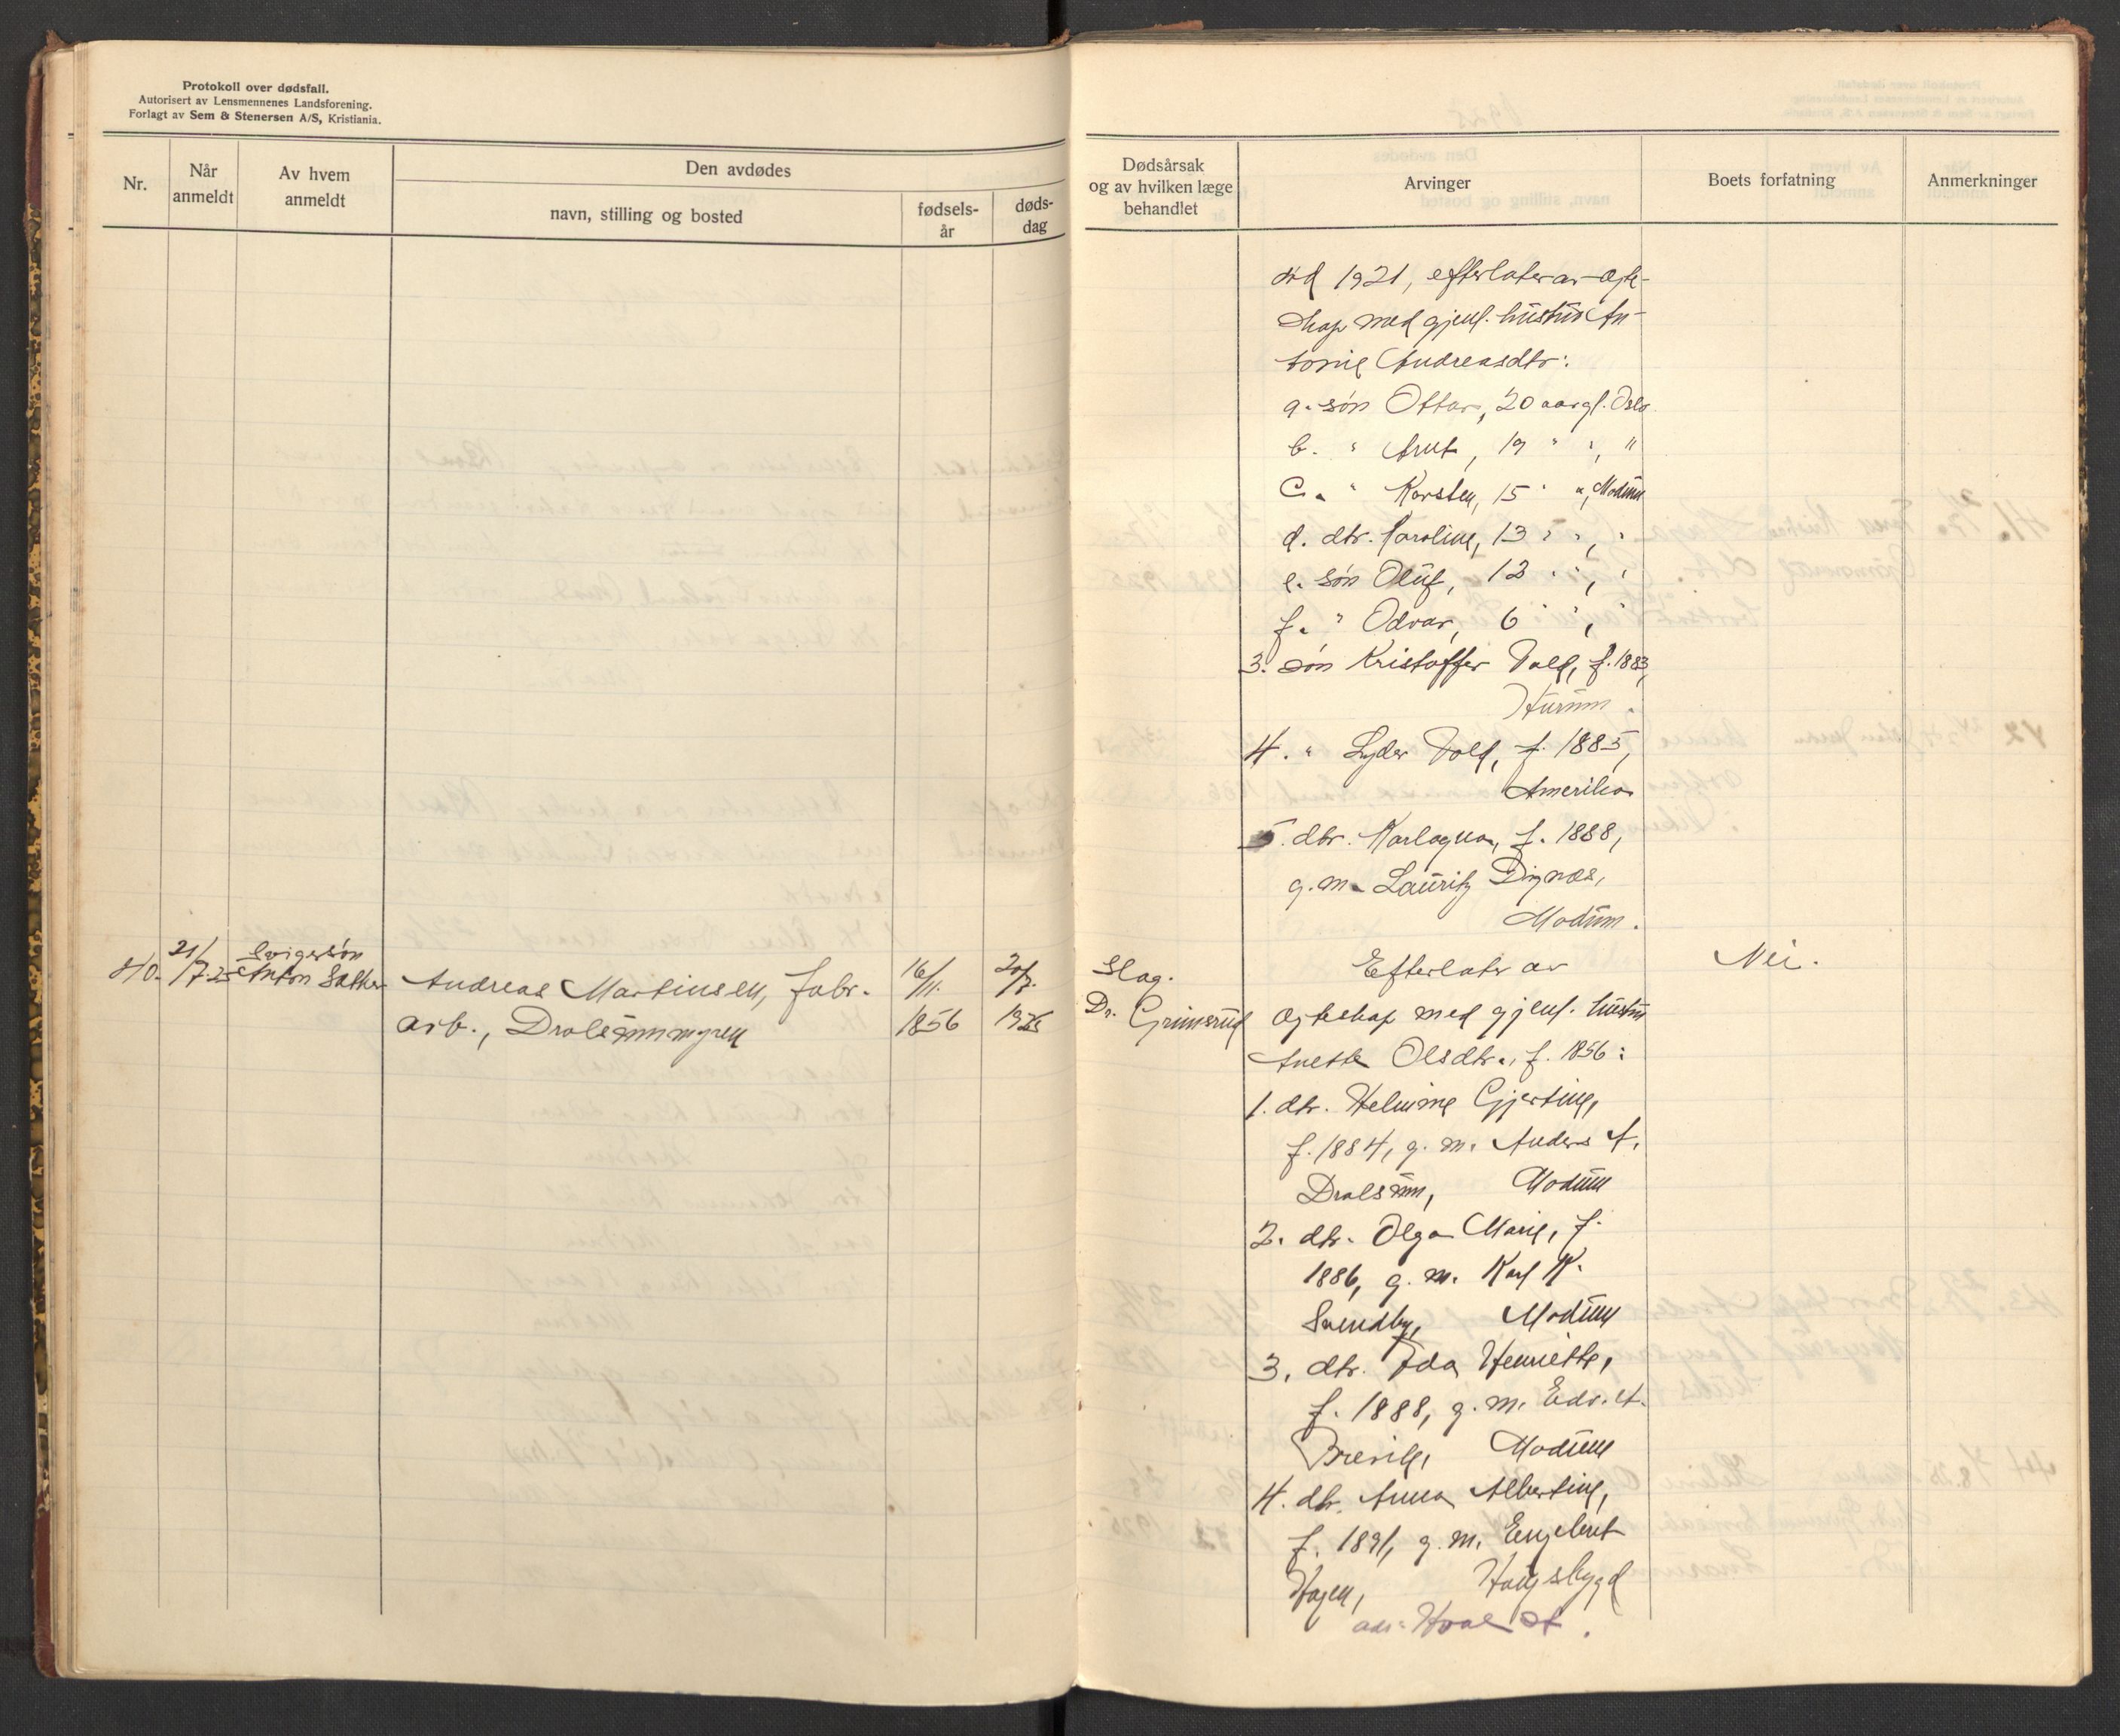 Protokoll over dødsfall.
Autorisert av Lensmennenes Landsforening.
Forlagt av Sem & Stenersen A/S, Kristiania.
Nr.
Når anmeldt
Av hvem anmeldt
Den avdødes
navn, stilling og bosted
fødsels-år
døds-dag
Dødsårsak og av hvilken læge behandlet
Arvinger
Boets forfatning
Anmerkninger
død 1921, efterlater av ægte-
skap med gjenl. hustru An-
tonie Andreasdtr:
a. søn Ottar, 20 aar gl. Oslo
b. " Arnt, 19 " ", "
c. " Karsten, 15 " ", Modum
d. dtr. Karoline, 13 " ", "
e. søn Oluf, 12 " ", "
f. " Odvar, 6 " ", "
3. søn Kristoffer Vold, f. 1883,
Hurum.
4. " Lyder Vold, f. 1885,
Amerika
5. dtr. Karlagna, f. 1888,
g.m. Lauritz Dignæs,
Modum.
40. 21/7-25 Svigersøn
Anton Sæther
Andreas Martinsen, fabr.
arb., Dralsumsmyren
16/11. 1856
20/7. 1925
Slag.
Dr. Grimsrud
Efterlater av
egteskap med gjenl. hustru
Anette Olsdtr., f. 1856:
1. dtr. Helmine Gjertine,
f. 1884, g. m. Anders A.
Drolsum, Modum
2. dtr. Olga Marie, f.
1886, g. m. Karl K.
Sundby, Modum
3. dtr. Ida Henriette,
f. 1888, g. m. Edv. A.
Brevik, Modum
4. dtr. Anna Albertine,
f. 1891, g. m. Engebret
Hagen, Haugsbygd
adr: Hval st.
Nei.